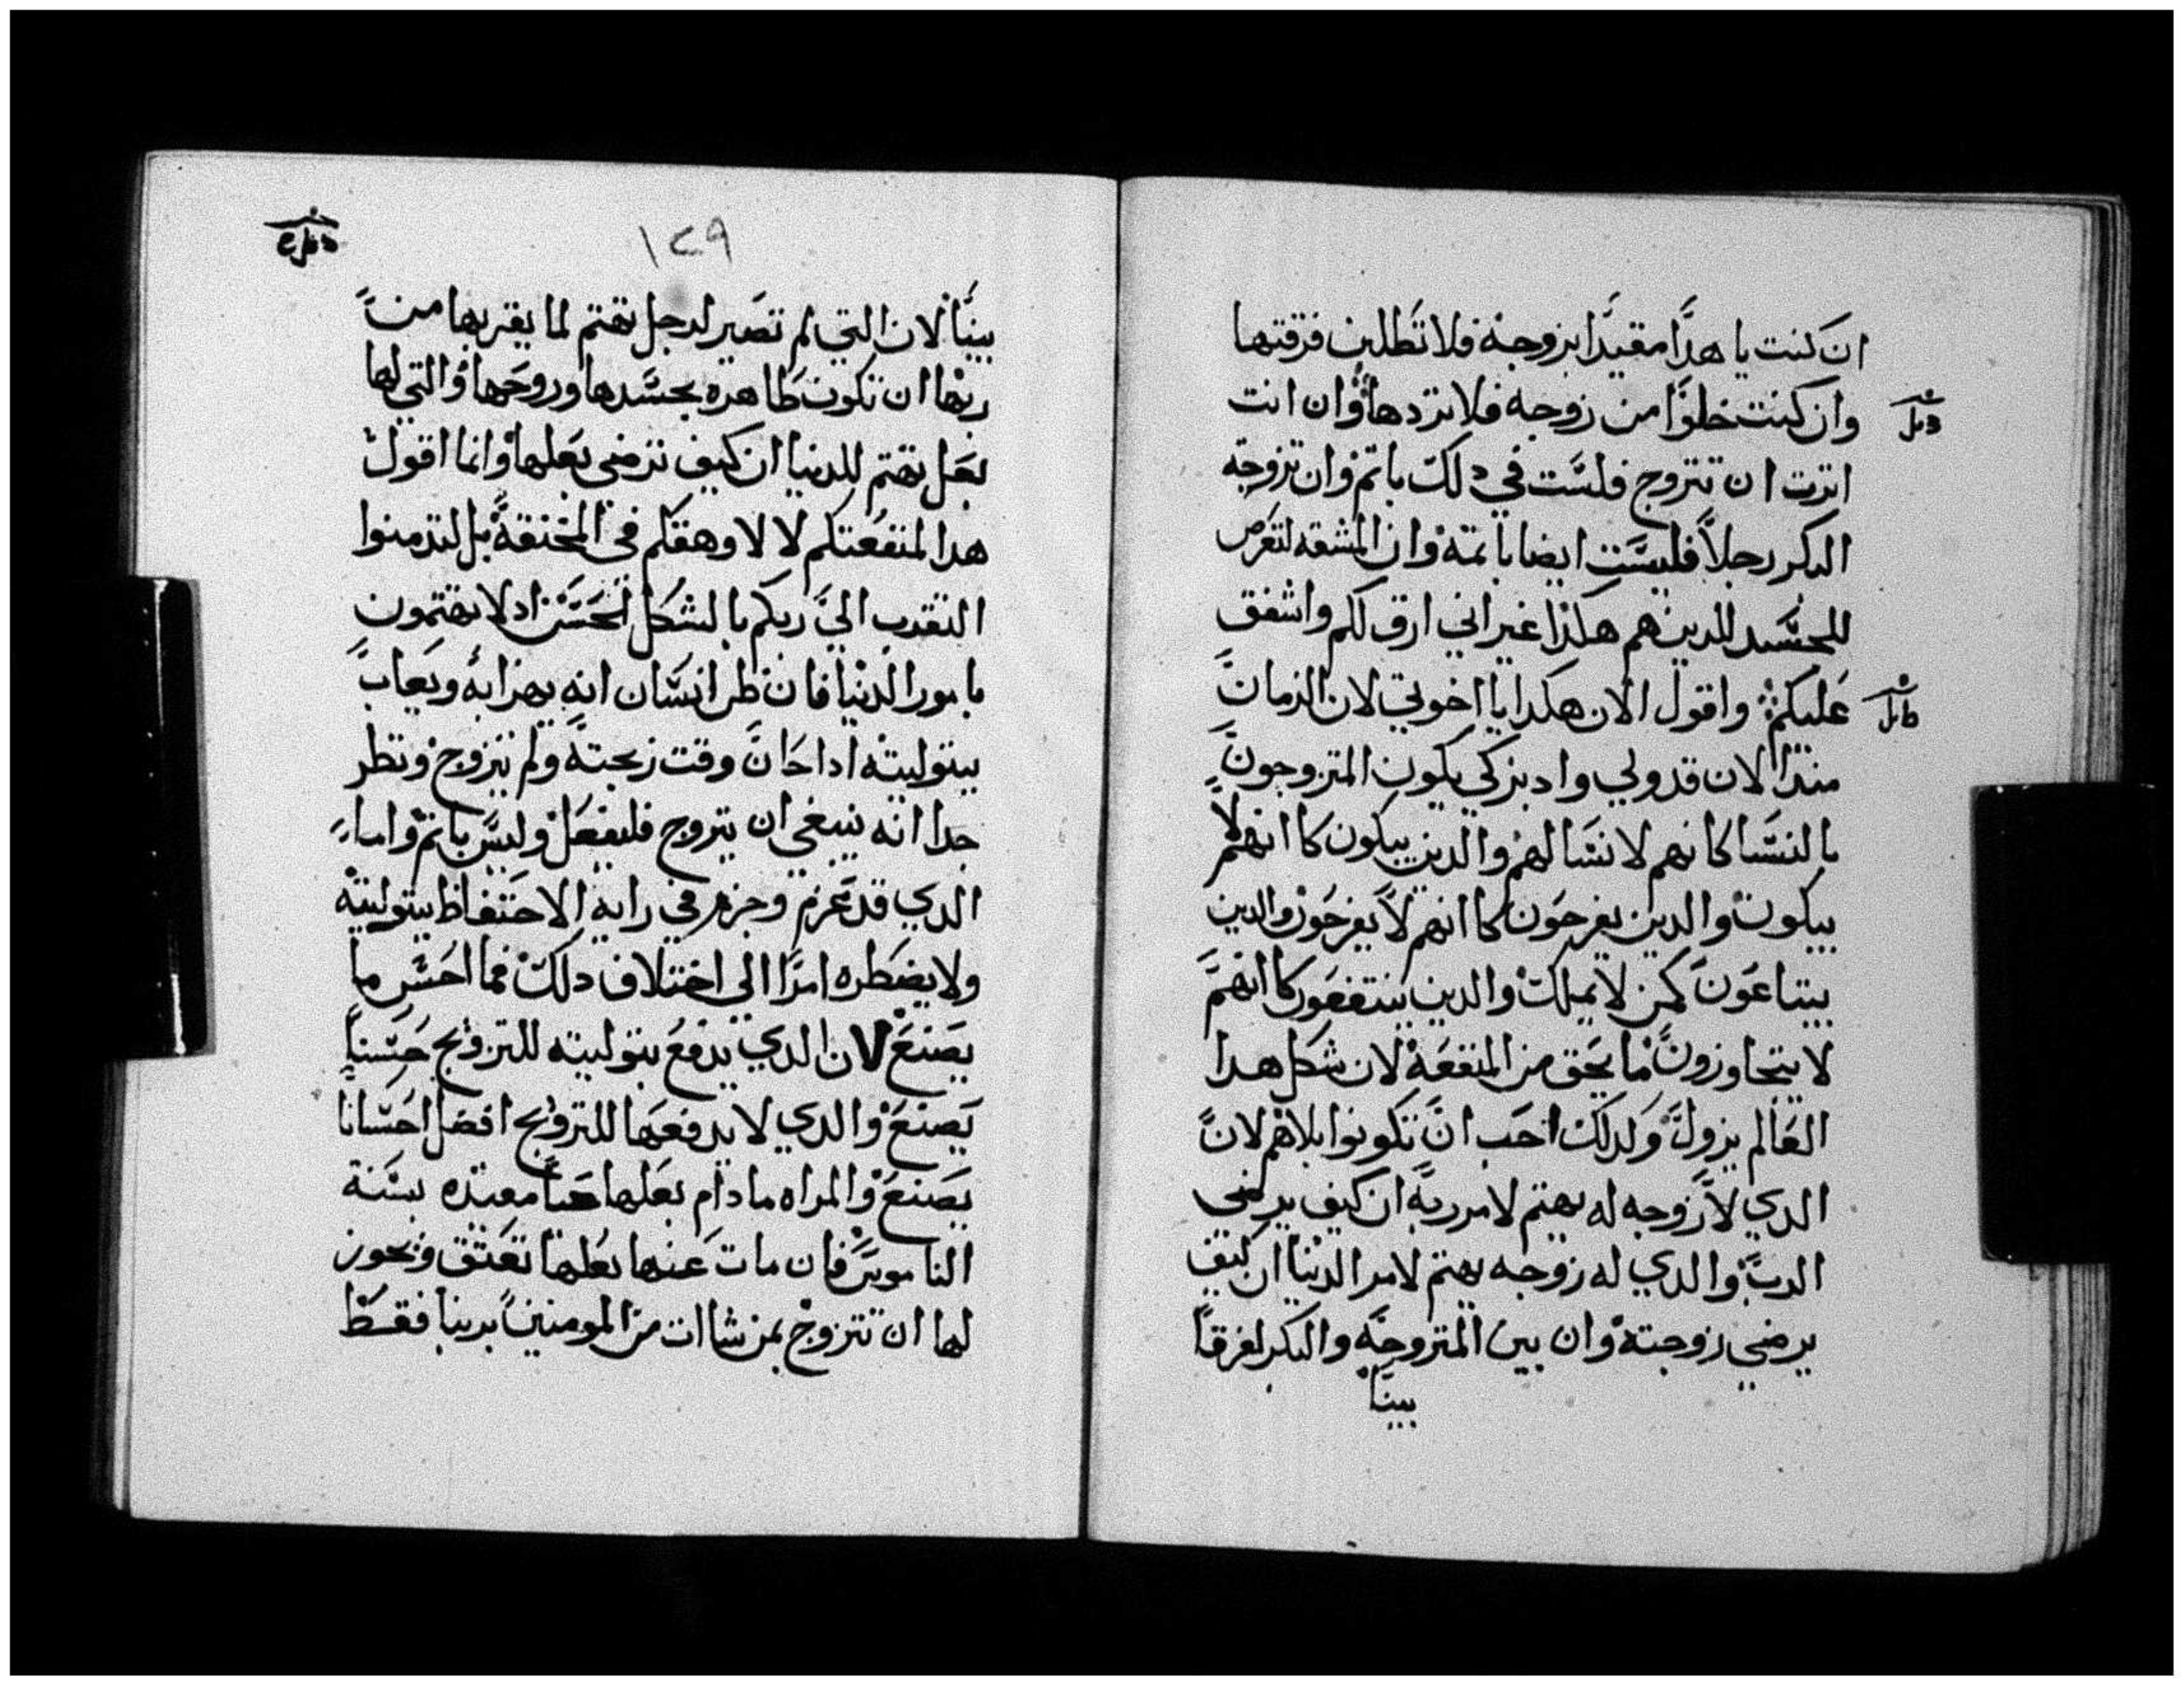 ان كنت يا هدا مقيدا بزوجه فلا تطلبن فرقتها
وان كنت خلوا من زوجه فلا تردها وان انت
اترت ان تتزوج فلست في دلك باتم وان تزوجه
البكر رجلا فليست ايضا باتمه وان المشقه لتعرض
للجسد للدين هم هكدا غير اني ارق لكم واشفق
عليكم واقول الان هكدا يا اخوتي لان الزمان
مند الان قد ولي وادبر كي يكون المتزوجون
بالنسا كانهم لا نسا لهم والدين يبكون كا انهم لا
يبكون والدين يفرحون كا انهم لا يفرحون والدين
يبتاعون كمن لا يملك والدين ينتفعون كا انهم
لا يتجاوزون ما يحق من المنفعه لان شكل هدا
العالم يزول ولدلك احب ان تكونوا بلا هم لان
الدي لا زوجه له يهتم لامر ربه ان كيف يرضي
الرب والدي له زوجه يهتم لامر الدنيا ان كيف
يرضي زوجته وان بين المتزوجه والبكر لفرقا
بينا
١٢٩
بينا لان التي لم تصير لرجل تهتم لما يقربها من
ربها ان تكون طاهره بجسدها وروحها والتي لها
بعل تهتم للدنيا ان كيف ترضي بعلها وانما اقول
هدا لمنفعتكم لا لاوهقكم في المخنقه بل لتدمنوا
التقرب الي ربكم بالشكل الحسن اد لا تهتمون
بامور الدنيا فان ظن انسان انه يهزا به ويعاب
ببتوليته ادا حان وقت زيجته ولم تتزوج ونظر
جدا انه ينبغي ان يتزوج فليفعل وليس باتم واما
الدي قد عزم وجزم في رايه الاحتفاظ ببتوليته
ولا يضطره امرا الي اختلاف دلك فما احسن ما
يصنع لان الدي يدفع بتوليته للتزويج حسنا
يصنع والدي لا يدفعها للتزويج افضل احسانا
يصنع والمراه ما دام بعلها حيا مقيده بسنة
الناموس فان مات عنها بعلها تعتق ويجوز
لها ان تتزوج بمن شاات من المومنين بربنا فقط